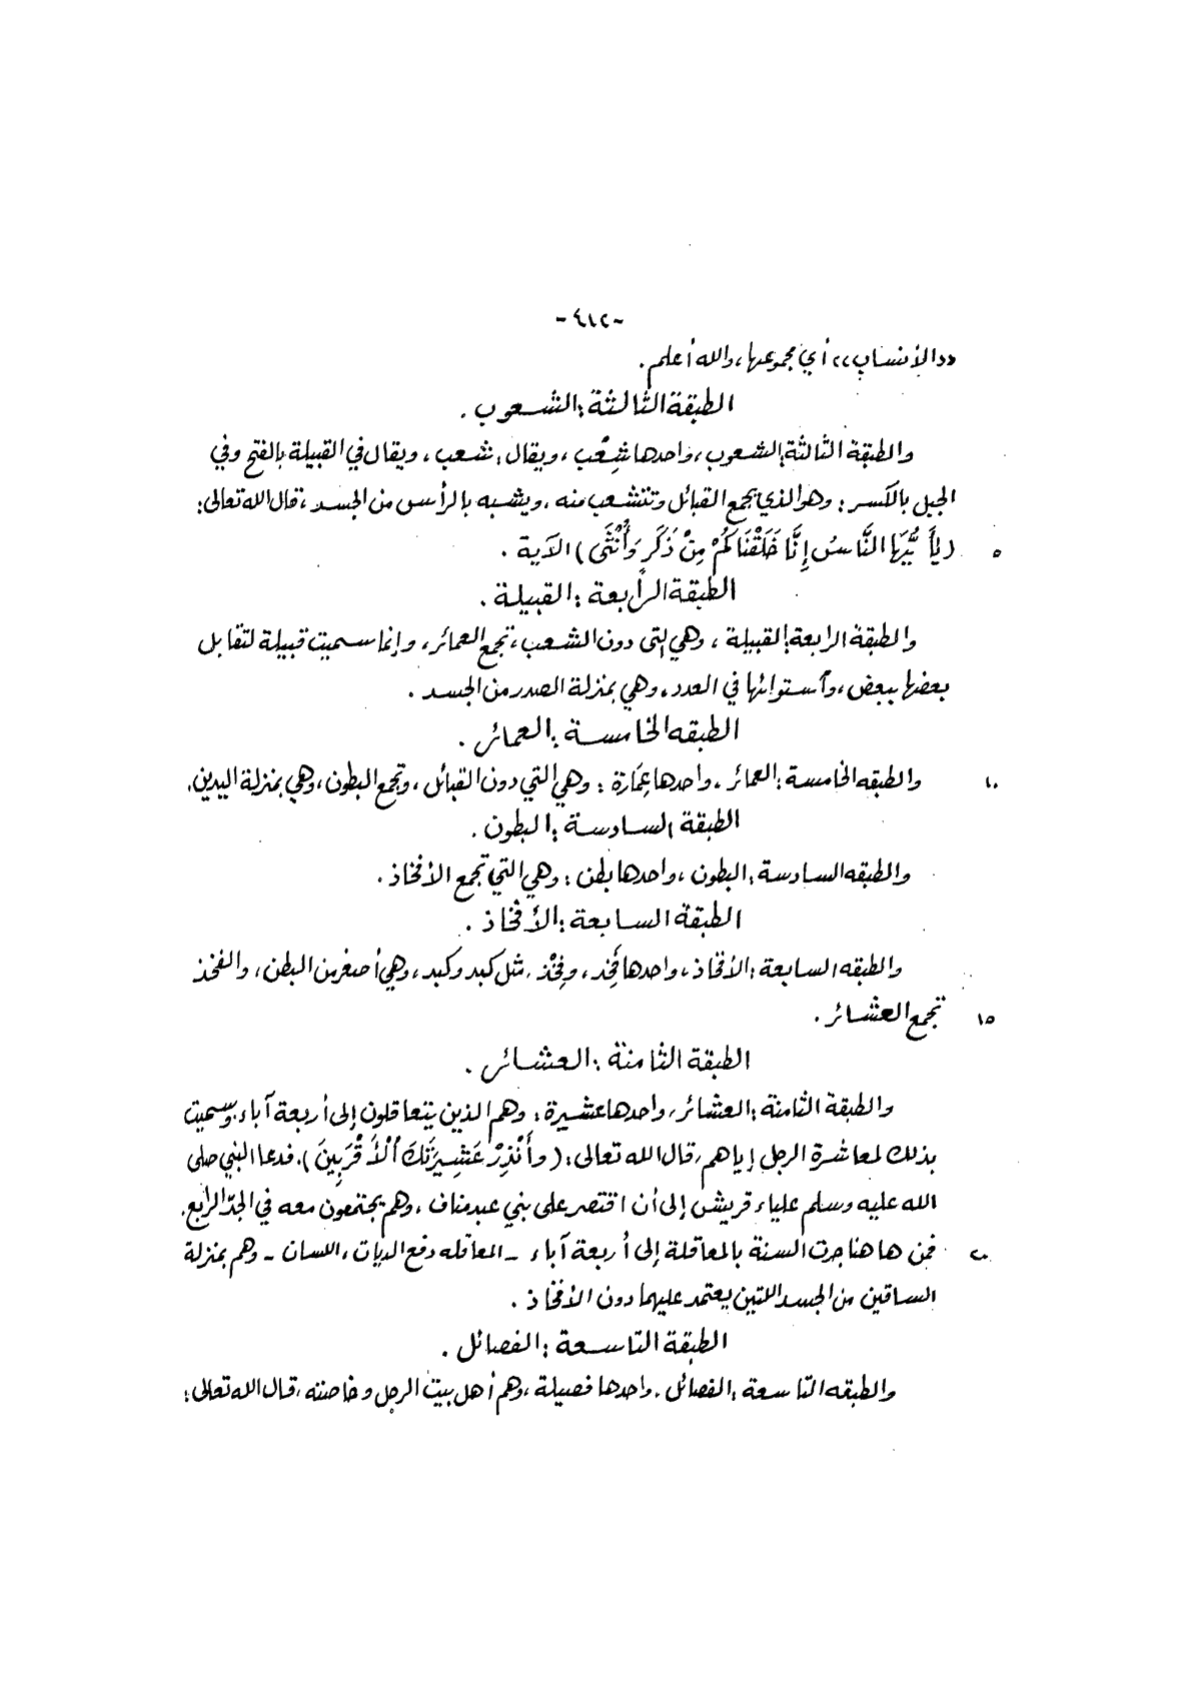 -٤١٢-
«الأنساب» أي مجموعها، والله أعلم.
الطبقة الثالثة: الشعوب.
والطبقة الثالثة: الشعوب، واحدها شِعْب، ويقال: شَعب، ويقال في القبيلة بالفتح وفي
الجبل بالكسر: وهو الذي يجمع القبائل وتتشعب منه، ويشبه بالرأس من الجسد، قال الله تعالى:
٥ (يَأَيُّهَا النَّاسُ إِنَّا خَلَقْنَاكُمْ مِنْ ذَكَرٍ وَأُنْثَى) الآية.
الطبقة الرابعة: القبيلة.
والطبقة الرابعة: القبيلة، وهي التي دون الشعب، تجمع العمائر، وإنما سميت قبيلة لتقابل
بعضها ببعض، وآستوائها في العدد، وهي بمنزلة الصدر من الجسد.
الطبقه الخامسة: العمائر.
١٠ والطبقه الخامسة: العمائر، واحدها عِمَارة: وهي التي دون القبائل، وتجمع البطون، وهي بمنزلة اليدين.
الطبقة السادسة: البطون.
والطبقه السادسة: البطون، واحدها بطن: وهي التي تجمع الأفخاذ.
الطبقة السابعة: الأفخاذ.
والطبقه السابعة: الأفخاذ، واحدها فَخِذ، وفِخْذ، مثل كبد وكبد، وهي أصغر من البطن، والفخذ
١٥ تجمع العشائر.
الطبقة الثامنة: العشائر.
والطبقة الثامنة: العشائر، واحدها عشيرة: وهم الذين يتعاقلون إلى أربعة آباء، وسميت
بذلك لمعاشرة الرجل إياهم، قال الله تعالى: (وأَنْذِرْ عَشِيرَتَكَ ٱلْأَقْرَبِينَ). فدعا النبي صلى
الله عليه وسلم علياء قريش إلى أن اقتصر على بني عبد مناف، وهم يجتمعون معه في الجدّ الرابع.
٢٠ فمن هاهنا جرت السنة بالمعاقلة إلى أربعة آباء - المعاقله دفع الديات، اللسان - وهم بمنزلة
الساقين من الجسد اللتين يعتمد عليهما دون الأفخاذ.
الطبقة التاسعة: الفصائل.
والطبقه التاسعة: الفصائل، واحدها فصيلة، وهم أهل بيت الرجل وخاصته، قال الله تعالى: